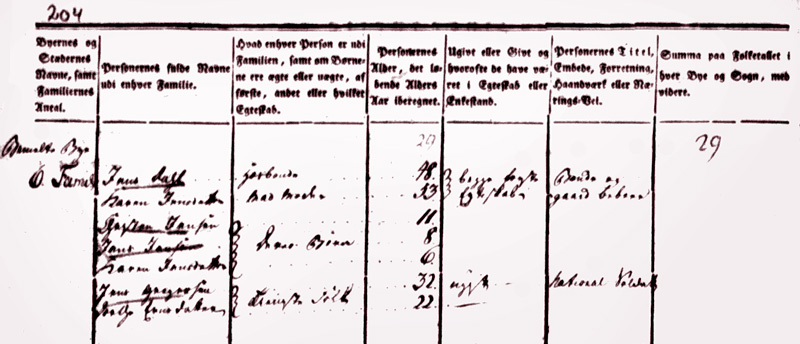 204
Byernes og Stædernes Navne, samt Familiernes Antal.
Personernes fulde Navne udi enhver Familie.
Hvad enhver Person er udi Familien, samt om Børnene ere ægte eller uægte, af første, andet eller hvilket Egteskab.
Personernes Alder, det løbende Alders Aar iberegnet.
Ugivt eller Givt og hvorofte de have været i Egteskab eller Enkestand.
Personernes Titel, Embede, Forretning, Haandværk eller Nærings-Vei.
Summa paa Folketallet i hver Bye og Sogn, med videre.
29 29
Bye
6. Jens Hosbonde 48 begge første Bonde og
Karen Jensdatter Mad Moder 33 Egteskab gaard beboer
Jensen 11
Jens Jensen deres Børn 8
Karen Jensdatter 6
Jens Gregersen 32 ugift National Soldat
Tieneste Folk 22